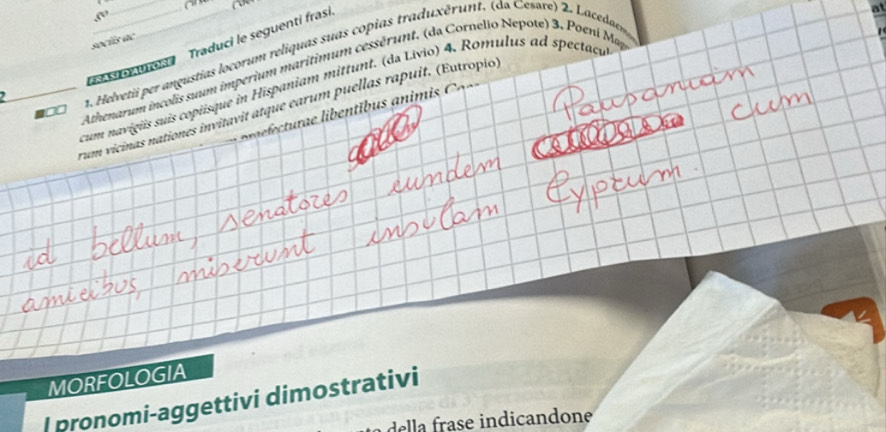 go
sociis ac
FRASI D'AUTORE Traduci le seguenti frasi.
1. Helvetii per angustias locorum reliquas suas copias traduxērunt. (da Cesare) 2. Lacedaem
Athenarum incolis suum imperium maritimum cessērunt. (da Cornelio Nepote) 3. Poeni Mag
cum navigiis suis copiisque in Hispaniam mittunt. (da Livio) 4. Romulus ad spectacu
rum vicinas nationes invitavit atque earum puellas rapuit. (Eutropio)
praefecturae libentibus animis
Pausaniam
id bellum, senatores eundem cum
amicibus, miserunt insulam Cyprum
MORFOLOGIA
I pronomi-aggettivi dimostrativi
della frase indicandone